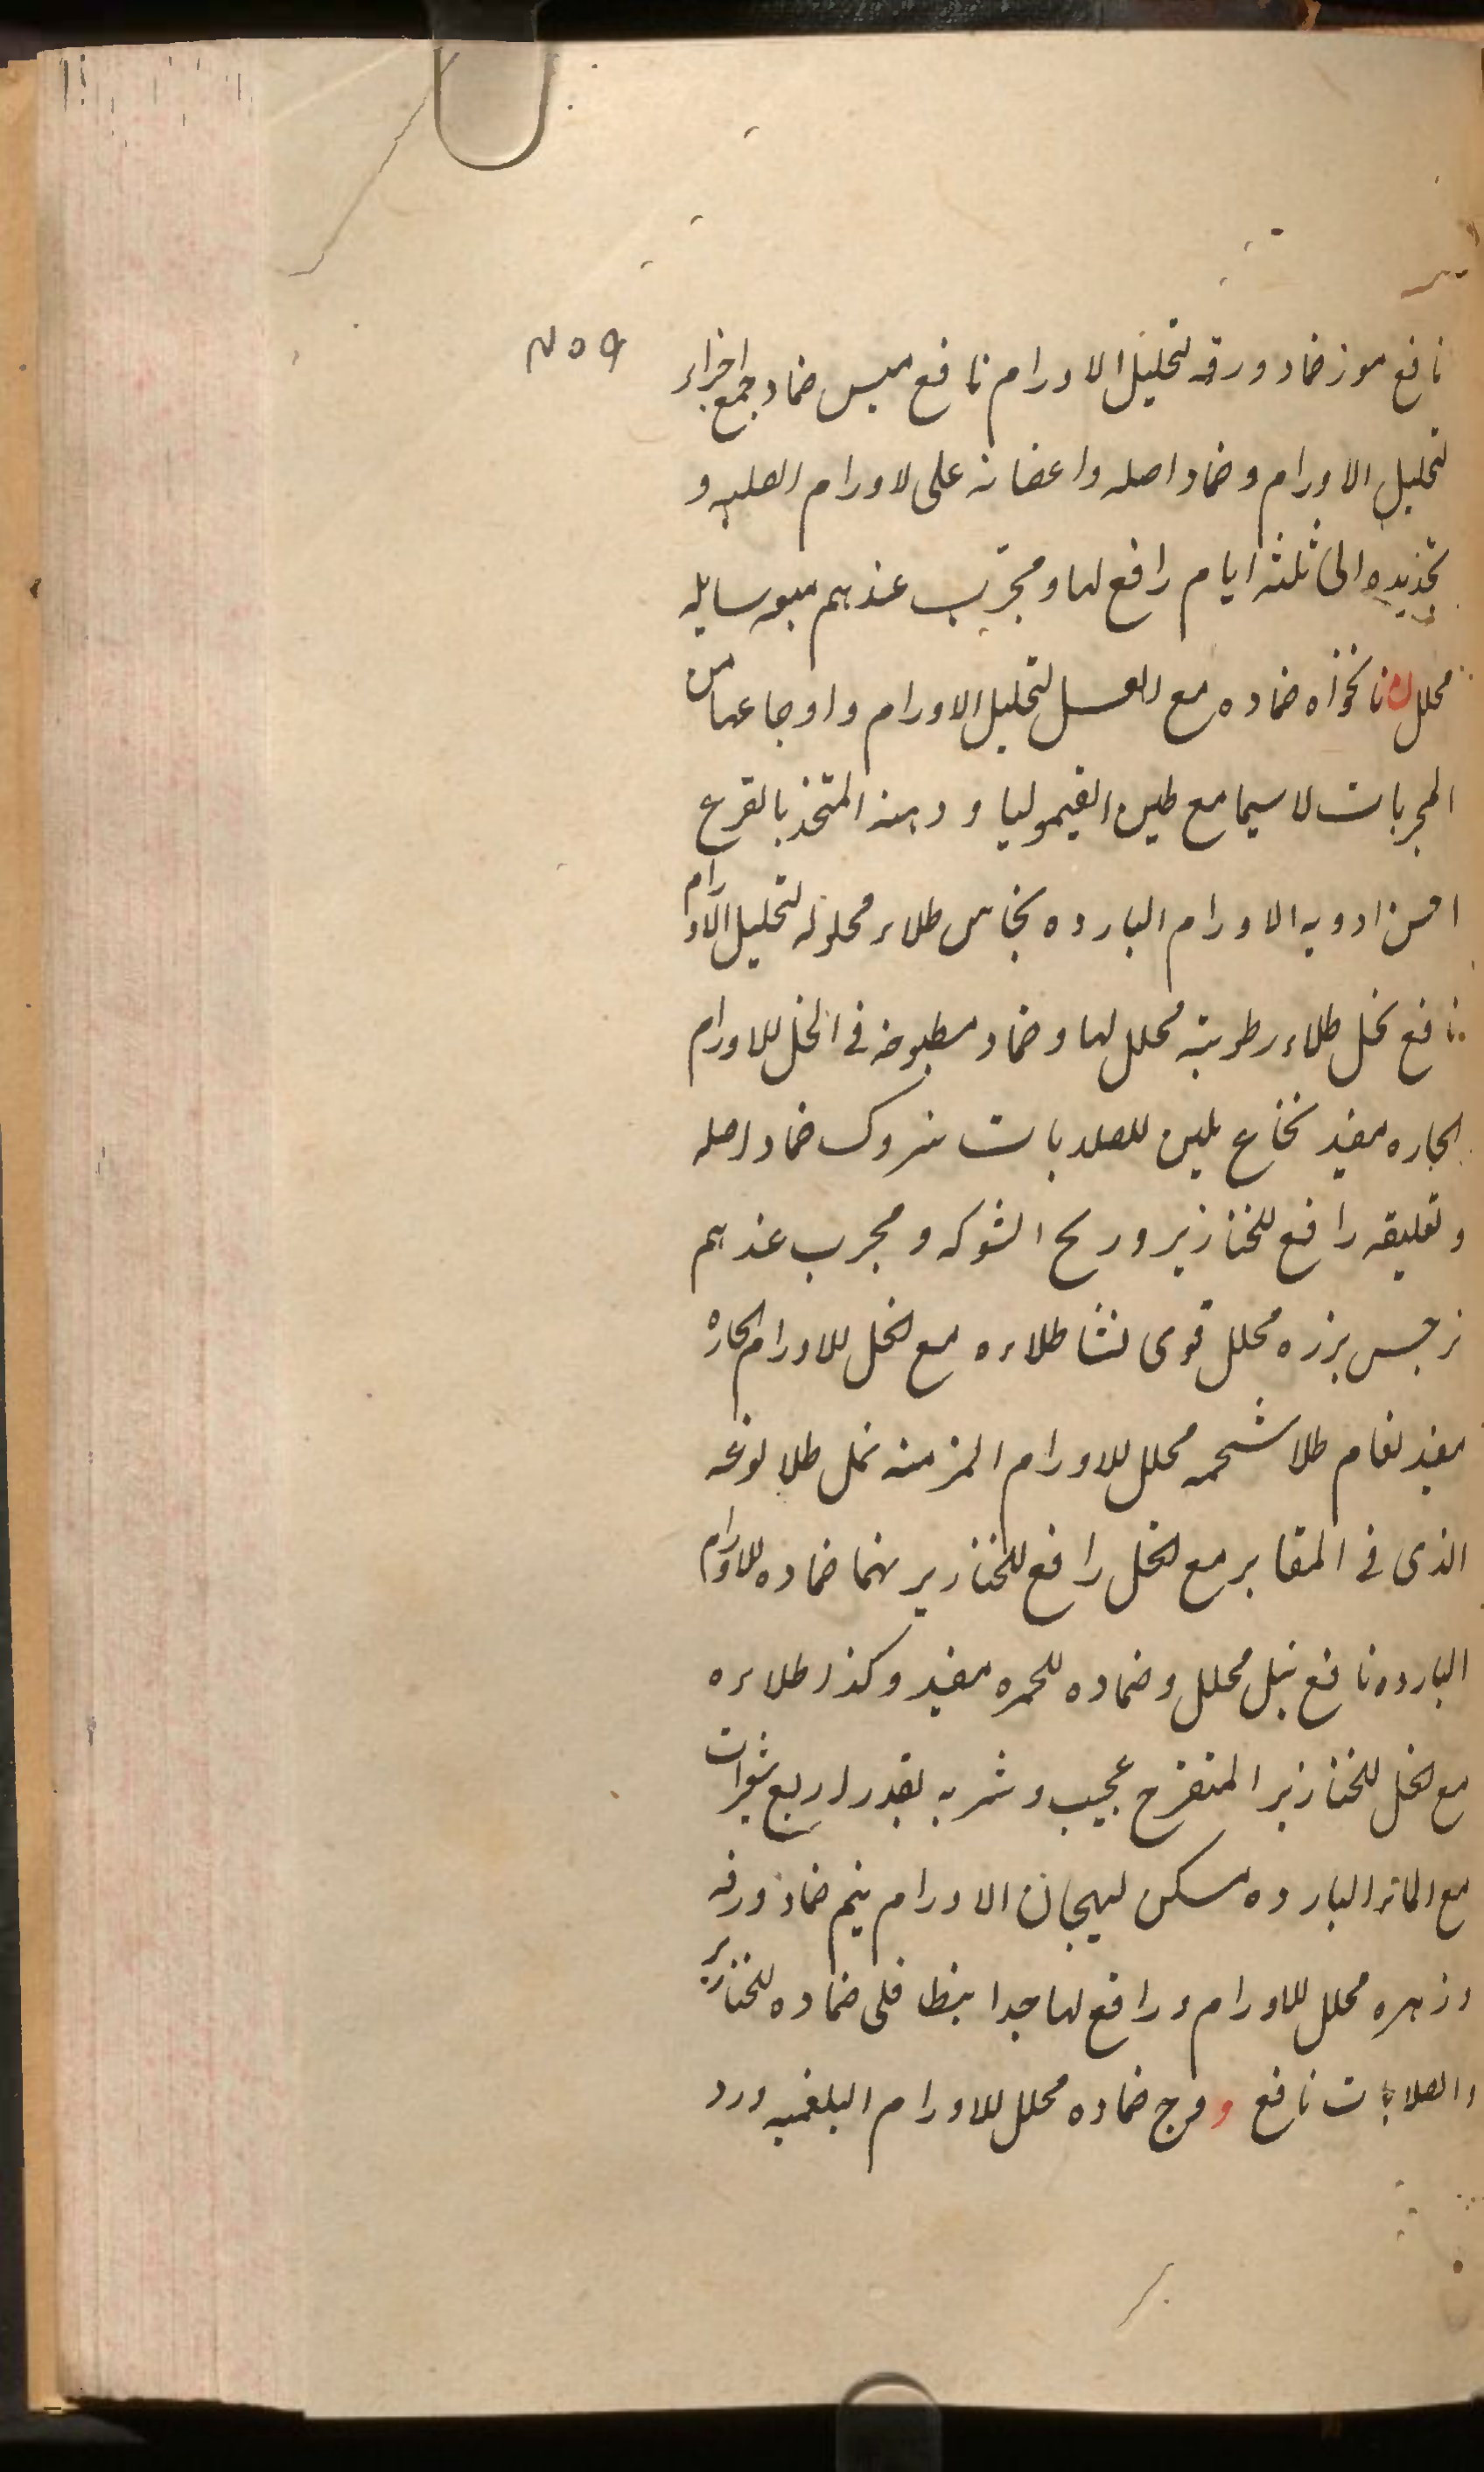 ٤٥٩
نافع موز ضماد ورقه لتحليل الاورام نافع ميس ضماد جمع اجزاء
لتحليل الاورام وضماد اصله واغصانه على لاورام الصلبه و
تجديده الى ثلثه ايام رافع لها ومجرّب عندهم ميعه سايله
محلل ن نانخواه ضماده مع العسل لتحليل الاورام واوجاعها من
المجربات لاسيما مع طين القيموليا ودهنه المتخذ بالقرع
احسن ادويه الاورام البارده نحاس طلاء محلوله لتحليل الاورام
نافع نخل طلاء رطوبته محلل لها وضماد مطبوخه فى الخل للاورام
الحاره مفيد نخاع يلين للصلابات نيروك ضماد اصله
وتعليقه رافع للخنازير وريح الشوكه ومجرب عندهم
نرجس بزره محلل قوى نشا طلاءه مع الخل للاورام الحاره
مفيد نعام طلا شحمه محلل للاورام المزمنه نمل طلا نوعه
الذى فى المقابر مع الخل رافع للخنازير نهما ضماده للاورام
البارده نافع نيل محلل وضماده للحمره مفيد وكذا طلاءه
مع الخل للخنازير المتقرح عجيب وشربه بقدر اربع شعيرات
مع الماء البارده مسكن لهيجان الاورام نيم ضماد ورقه
وزهره محلل للاورام ورافع لها جدا ينطافلى ضماده للخنازير
والصلابات نافع و وج ضماده محلل للاورام البلغميه ورد